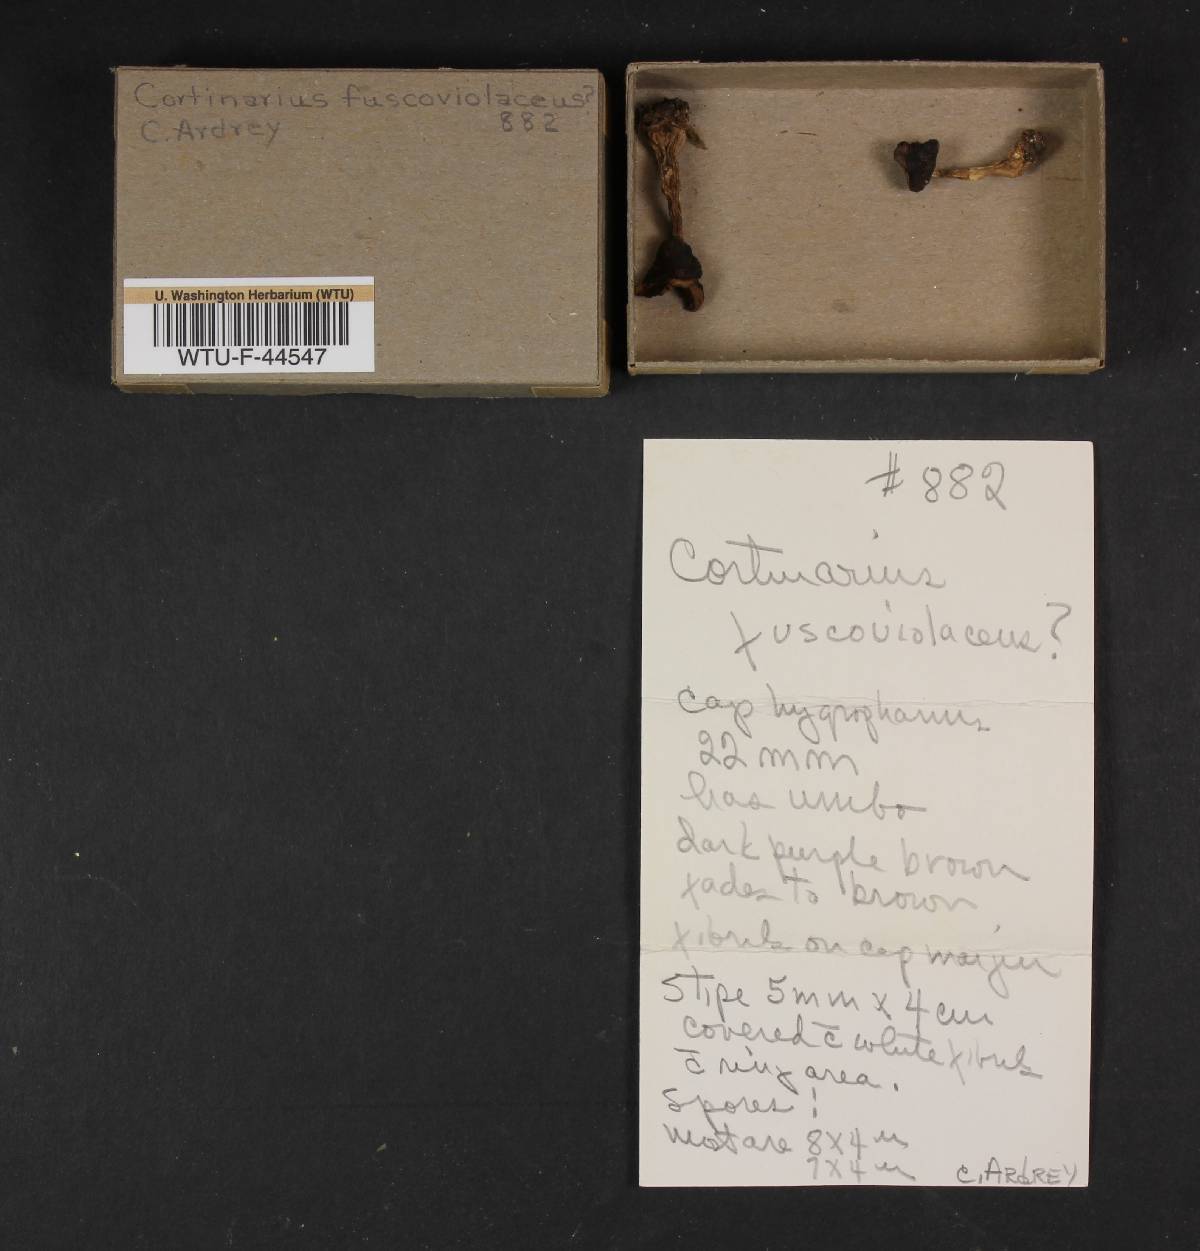 Cortinarius fuscoviolaceus?
C. Ardrey 882
U. Washington Herbarium (WTU)
WTU-F-44547
# 882
Cortinarius
fuscoviolaceus?
Cap hygrophanus
22 mm
has umbo
dark purple brown
fades to brown
fibrils on cap margin
Stipe 5mm x 4 cm
covered c̄ white fibrils
c̄ ring area.
Spores!
most are 8X4 u
7X4 u
C. ARdREY